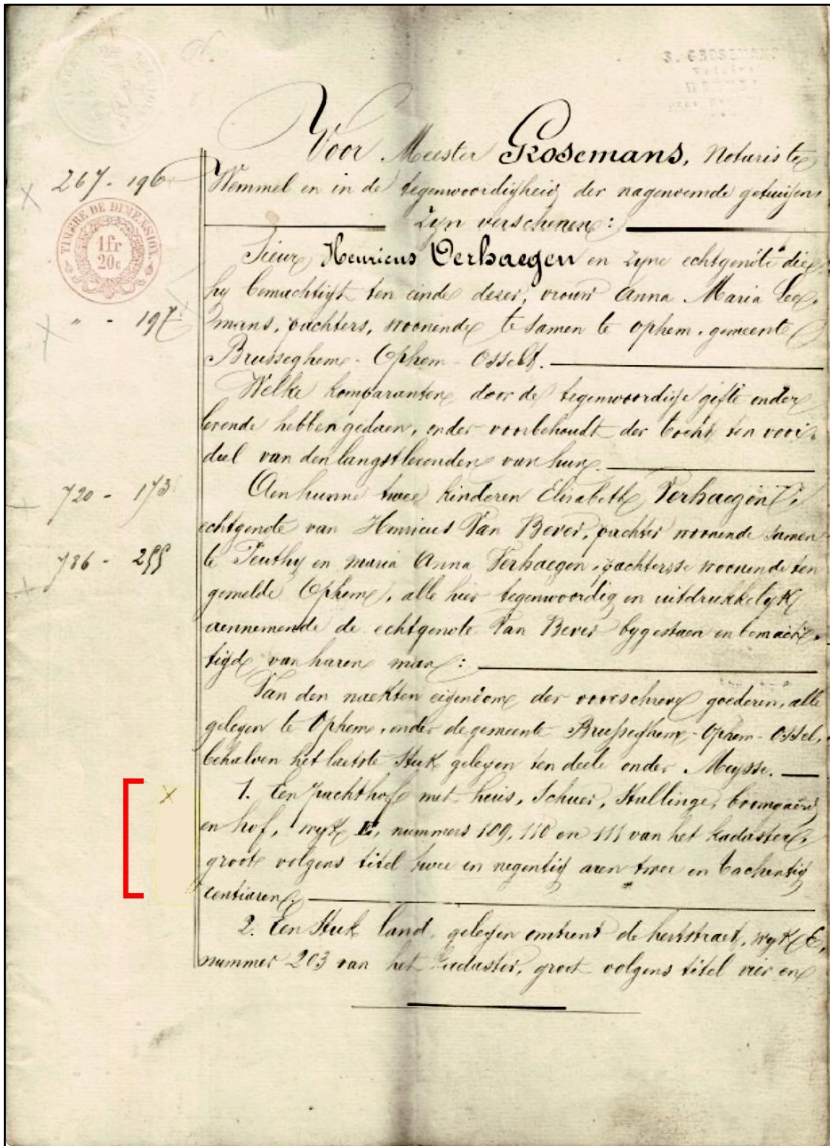 Voor Meester Grosemans, Notaris te
Wemmel en in de tegenwoordigheid der nagenoemde getuigen
zyn verschenen:
Sieur Henricus Verhaegen en zyne echtgenote die
hy bemachtigt ten einde dezer, vrouw Anna Maria Lee
mans, pachters, woonende te samen te Ophem, gemeente
Brusseghem-Ophem-Ossel.
Welke komparanten door de tegenwoordige gifte onder
levende hebben gedaen, onder voorbehoudt der tocht ten voor
deel van den langstlevenden van hun.
Aen hunne twee kinderen Elisabeth Verhaegen,
echtgenote van Henricus Van Bever, pachter woonende samen
te Peuthy en maria Anna Verhaegen, pachtersse woonende ten
gemelde Ophem, alle hier tegenwoordig en uitdrukkelyk
aennemende de echtgenote Van Bever bygestaen en bemach
tigd van haren man:
Van den naekten eigendom der voorschreve goederen, alle
gelegen te Ophem, onder de gemeente Brusseghem-Ophem-Ossel,
behalven het laetste stuk gelegen ten deele onder Meysse.
1. Een pachthof met huis, Schuer, Stallinge, boomgaerd
en hof, wyk E, nummers 109, 110 en 111 van het kadaster,
groot volgens titel twee en negentig aren twee en tachentig
centiaren.
2. Een stuk land, gelegen omtrent de, wyk E,
nummer 203 van het kadaster, groot volgens titel vier en
267 - 196
TIMBRE DE DIMENSION
1fr
20c
" - 197
720 - 173
786 - 255